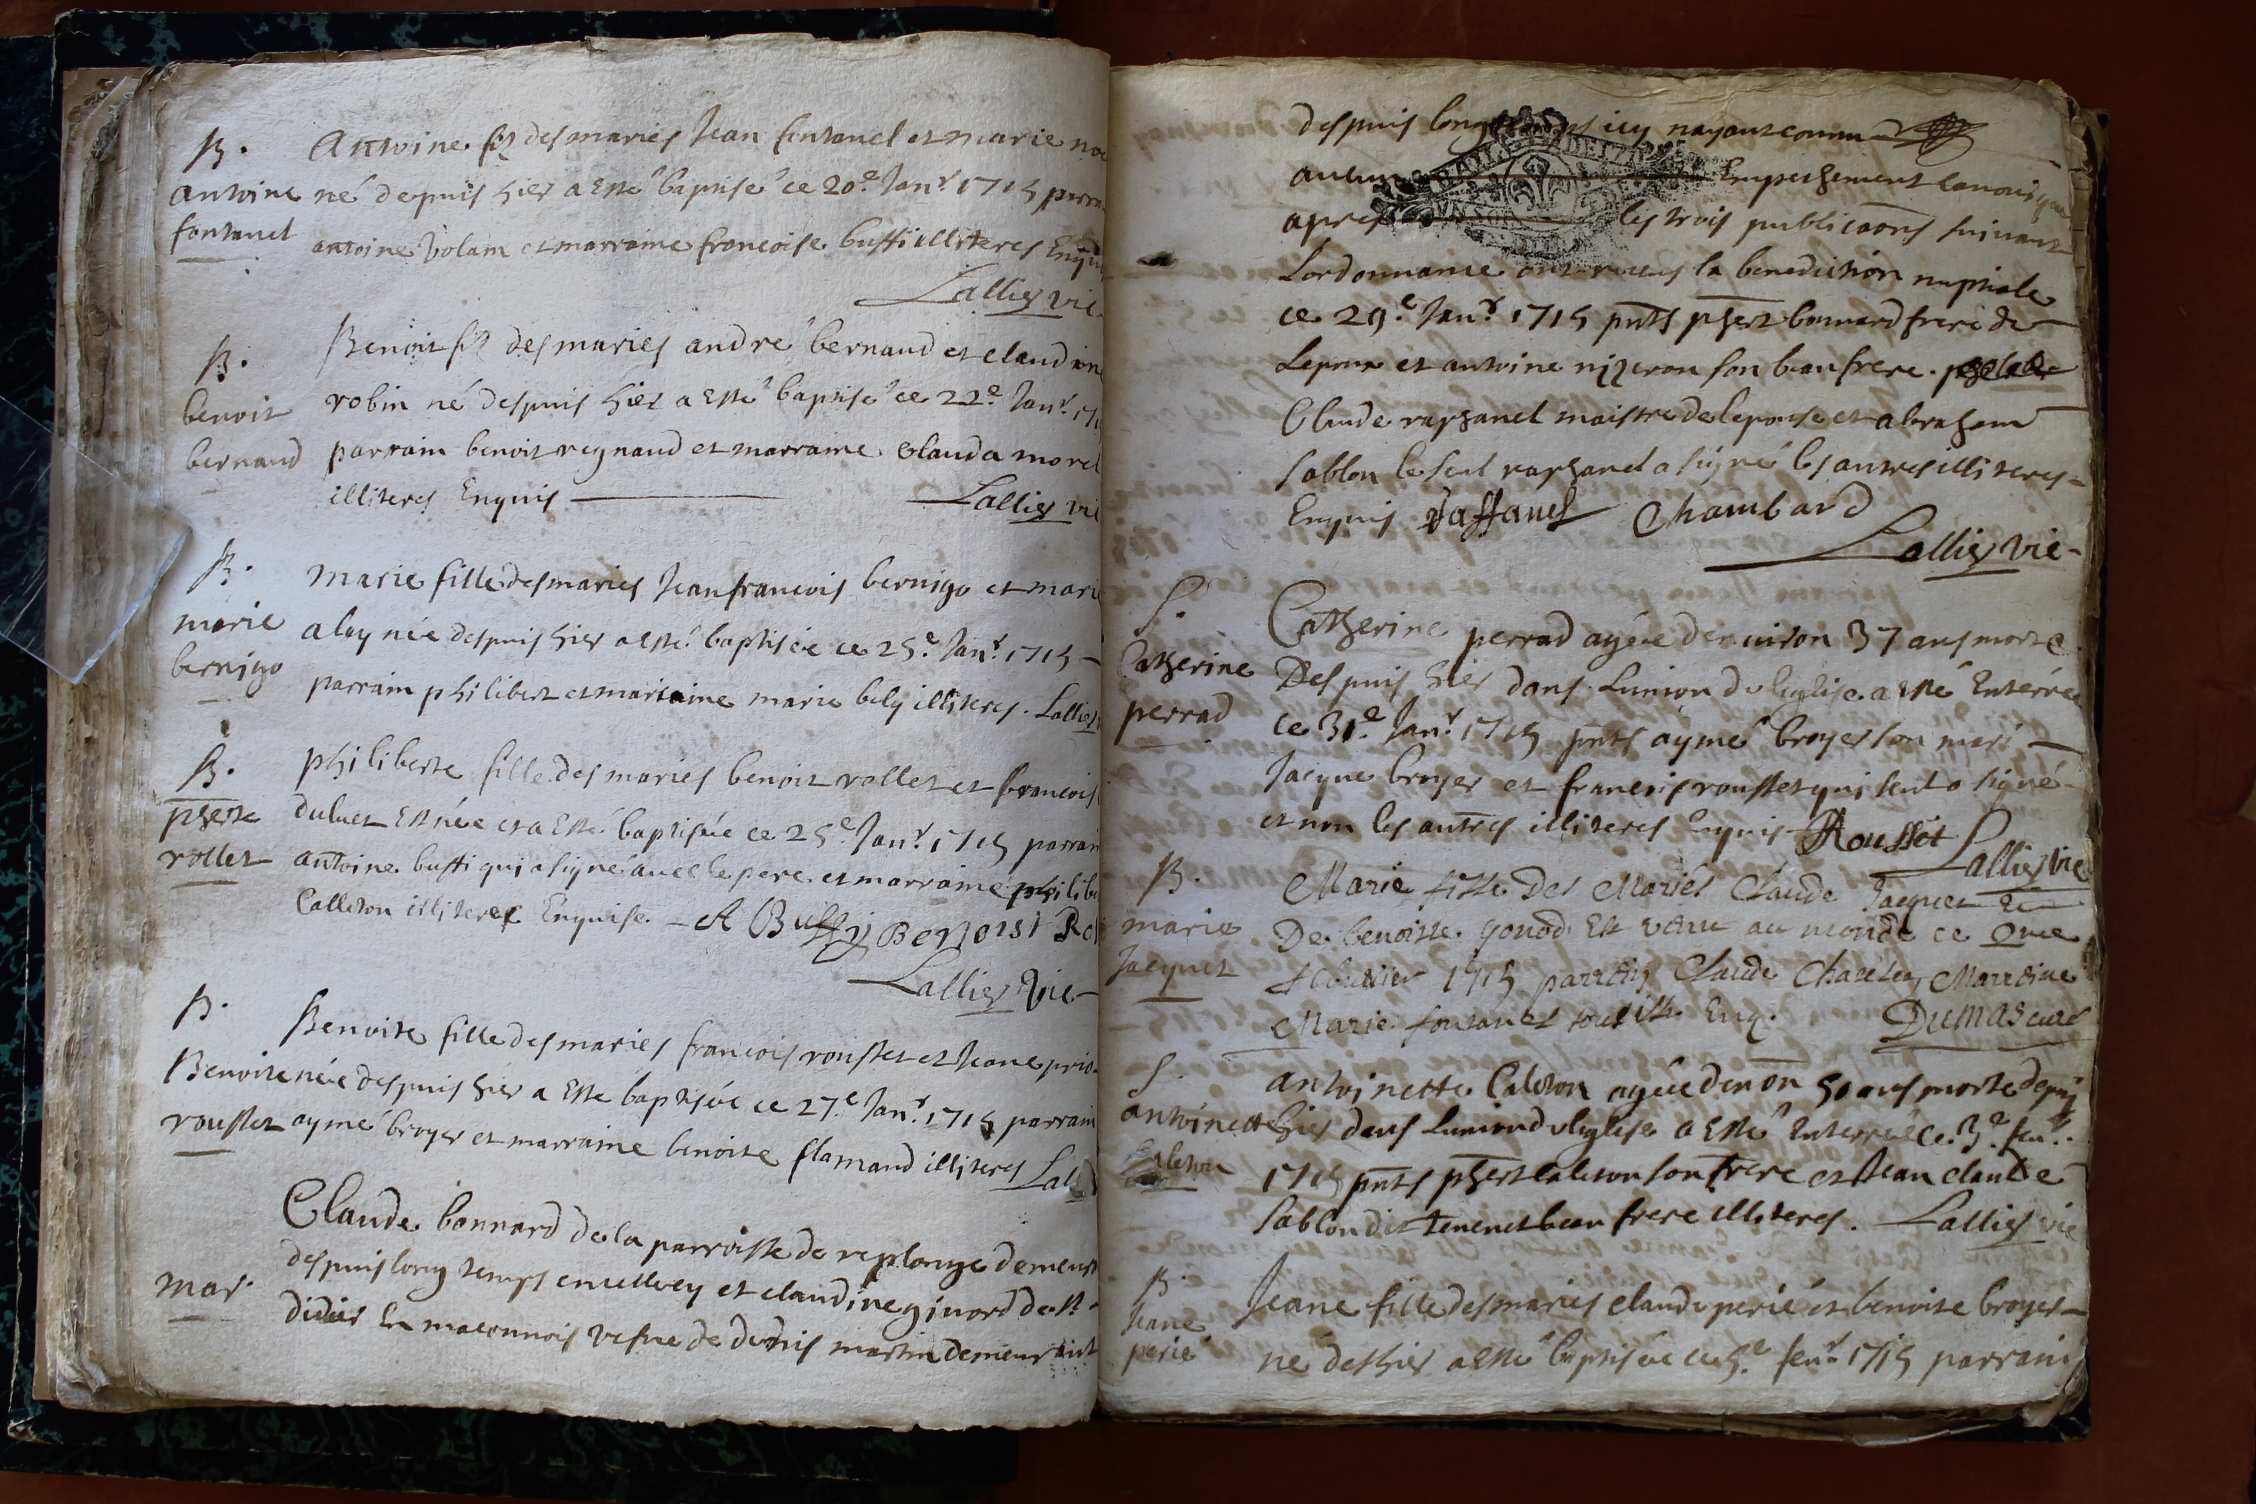 B.
antoine
fontanel
Antoine fs des mariés Jean fontanel et marie
né depuis hier a Esté baptisé ce 20.e Janr. 1715
antoine volam et marraine francoise buffi illiteres
Lallier vic
B.
benoit
bernaud
Benoit fs des mariés andré bernaud et claudine
robin né despuis hier a Esté baptisé ce 22.e Janr.
parrain benoit regnaud et marraine Clauda morel
illiteres Enquis Lallier vic
B.
marie
bernigo
marie fille des mariés Jean francois bernigo et marie
née despuis hier a esté baptisée ce 25.e Janr. 1715
parrain philibert et marraine marie bely illiteres. Lallier
B.
phberte
rollet
philiberte fille des mariés benoit rollet et francoise
duluet Est née et a Esté baptisée ce 25.e Janr. 1715 parrain
antoine buffi qui a signé avec le pere et marraine
Calleton illitere Enquise. A Buffy Benoist
Lallier vic
B.
Benoite
rousset
Benoite fille des mariés francois rousset et Jeane
née despuis hier a Esté baptisée ce 27.e Janr. 1715 parrain
aymé broyer et marraine benoite flamand illiteres
mar.
Claude bonnard de la parroisse de replonge
despuis long temps en et claudine ginord de St
didier En maconnois vefve de denis martin demeurant
despuis longtemps icy nayant connu
aucun Empeschement canonique
apres les trois publicaons suivant
Lordonnance ont receus la benediction nuptiale
ce 29.e Janr. 1715 pnts phert bonnard frere de
Lepoux et antoine nizeron son beau frere.
Claude raphanel maistre de lepouse et abraham
sablon le seul raphanel a signé les autres illiteres
Enquis Raffanel Chambard
Lallier vic
S.
Catherine
perrad
Catherine perrad agée denuiron 37 ans morte
Despuis hier dans Lunion de leglise a Esté Enterrée
ce 31.e Janr. 1715 pnts aymé broyer son mari
Jacque broyer et francois rousset qui seul a signé
et non les autres illiteres Enquis Roussot
Lallier vic
B.
marie
Jacquet
Marie fille Des Mariés Claude Jacquet Et
De benoiste gonod Est venu au monde ce
1715 parrain Claude Marraine
Marie fontanel Enq. Dumas curé
S.
antoinette
Caleton
antoinette Caleton agée denon 50 ans morte depuis
hier dans Lunion de leglise a Esté Enterrée ce 3.e feur.
1715 pnts phert caleton son frere et Jean claude
Sablon dit tenenet beau frere illiteres. Lallier vic
B.
Jeane
perié
Jeane fille des mariés claude perié et benoite broyer
né des hier a esté baptisée ce 5.e feur. 1715 parrain